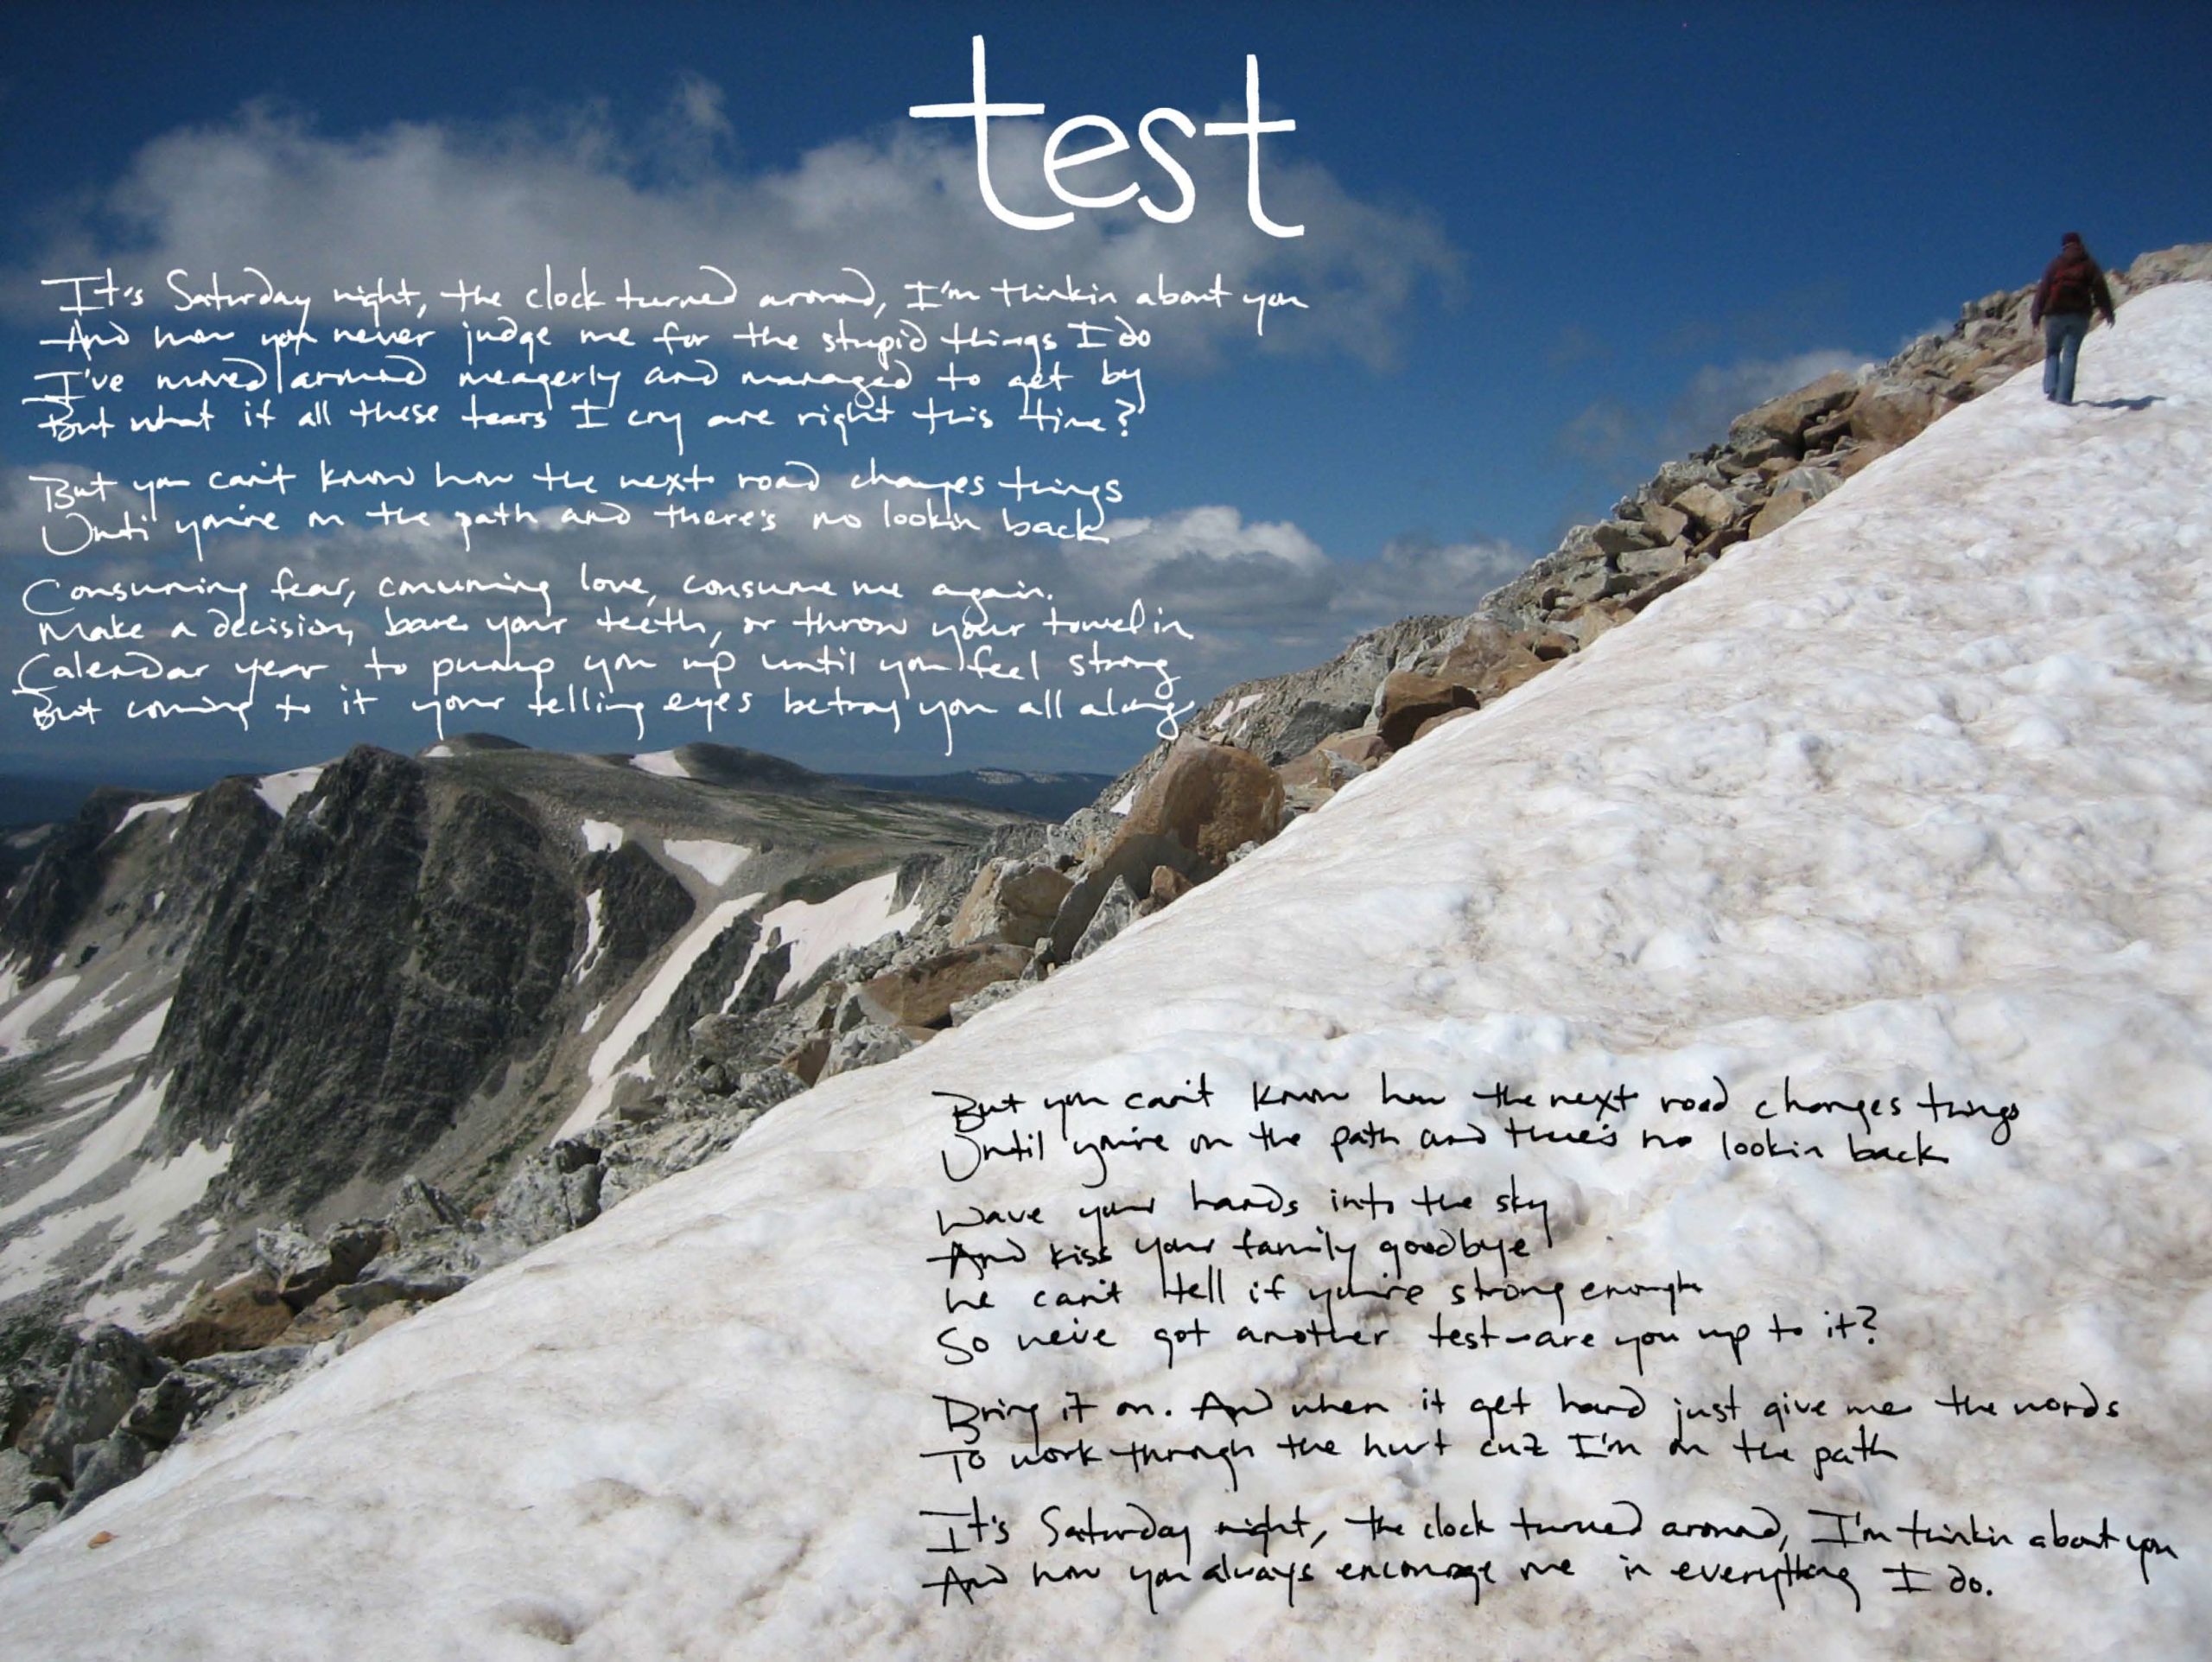 test
It's Saturday night, the clock turned around, I'm thinkin about you
And how you never judge me for the stupid things I do
I've moved around meagerly and managed to get by
But what if all these tears I cry are right this time?
But you can't know how the next road changes things
Until you're on the path and there's no lookin back
Consuming fear, consuming love, consume me again.
Make a decision, bare your teeth, or throw your towel in
Calendar year to pump you up until you feel strong
But coming to it your telling eyes betray you all along
But you can't know how the next road changes things
Until you're on the path and there's no lookin back
Wave your hands into the sky
And kiss your family goodbye
He can't tell if you're strong enough
So we've got another test-are you up to it?
Bring it on. And when it get hard just give me the words
To work through the hurt cuz I'm on the path
It's Saturday night, the clock turned around, I'm thinkin about you
And how you always encourage me in everything I do.